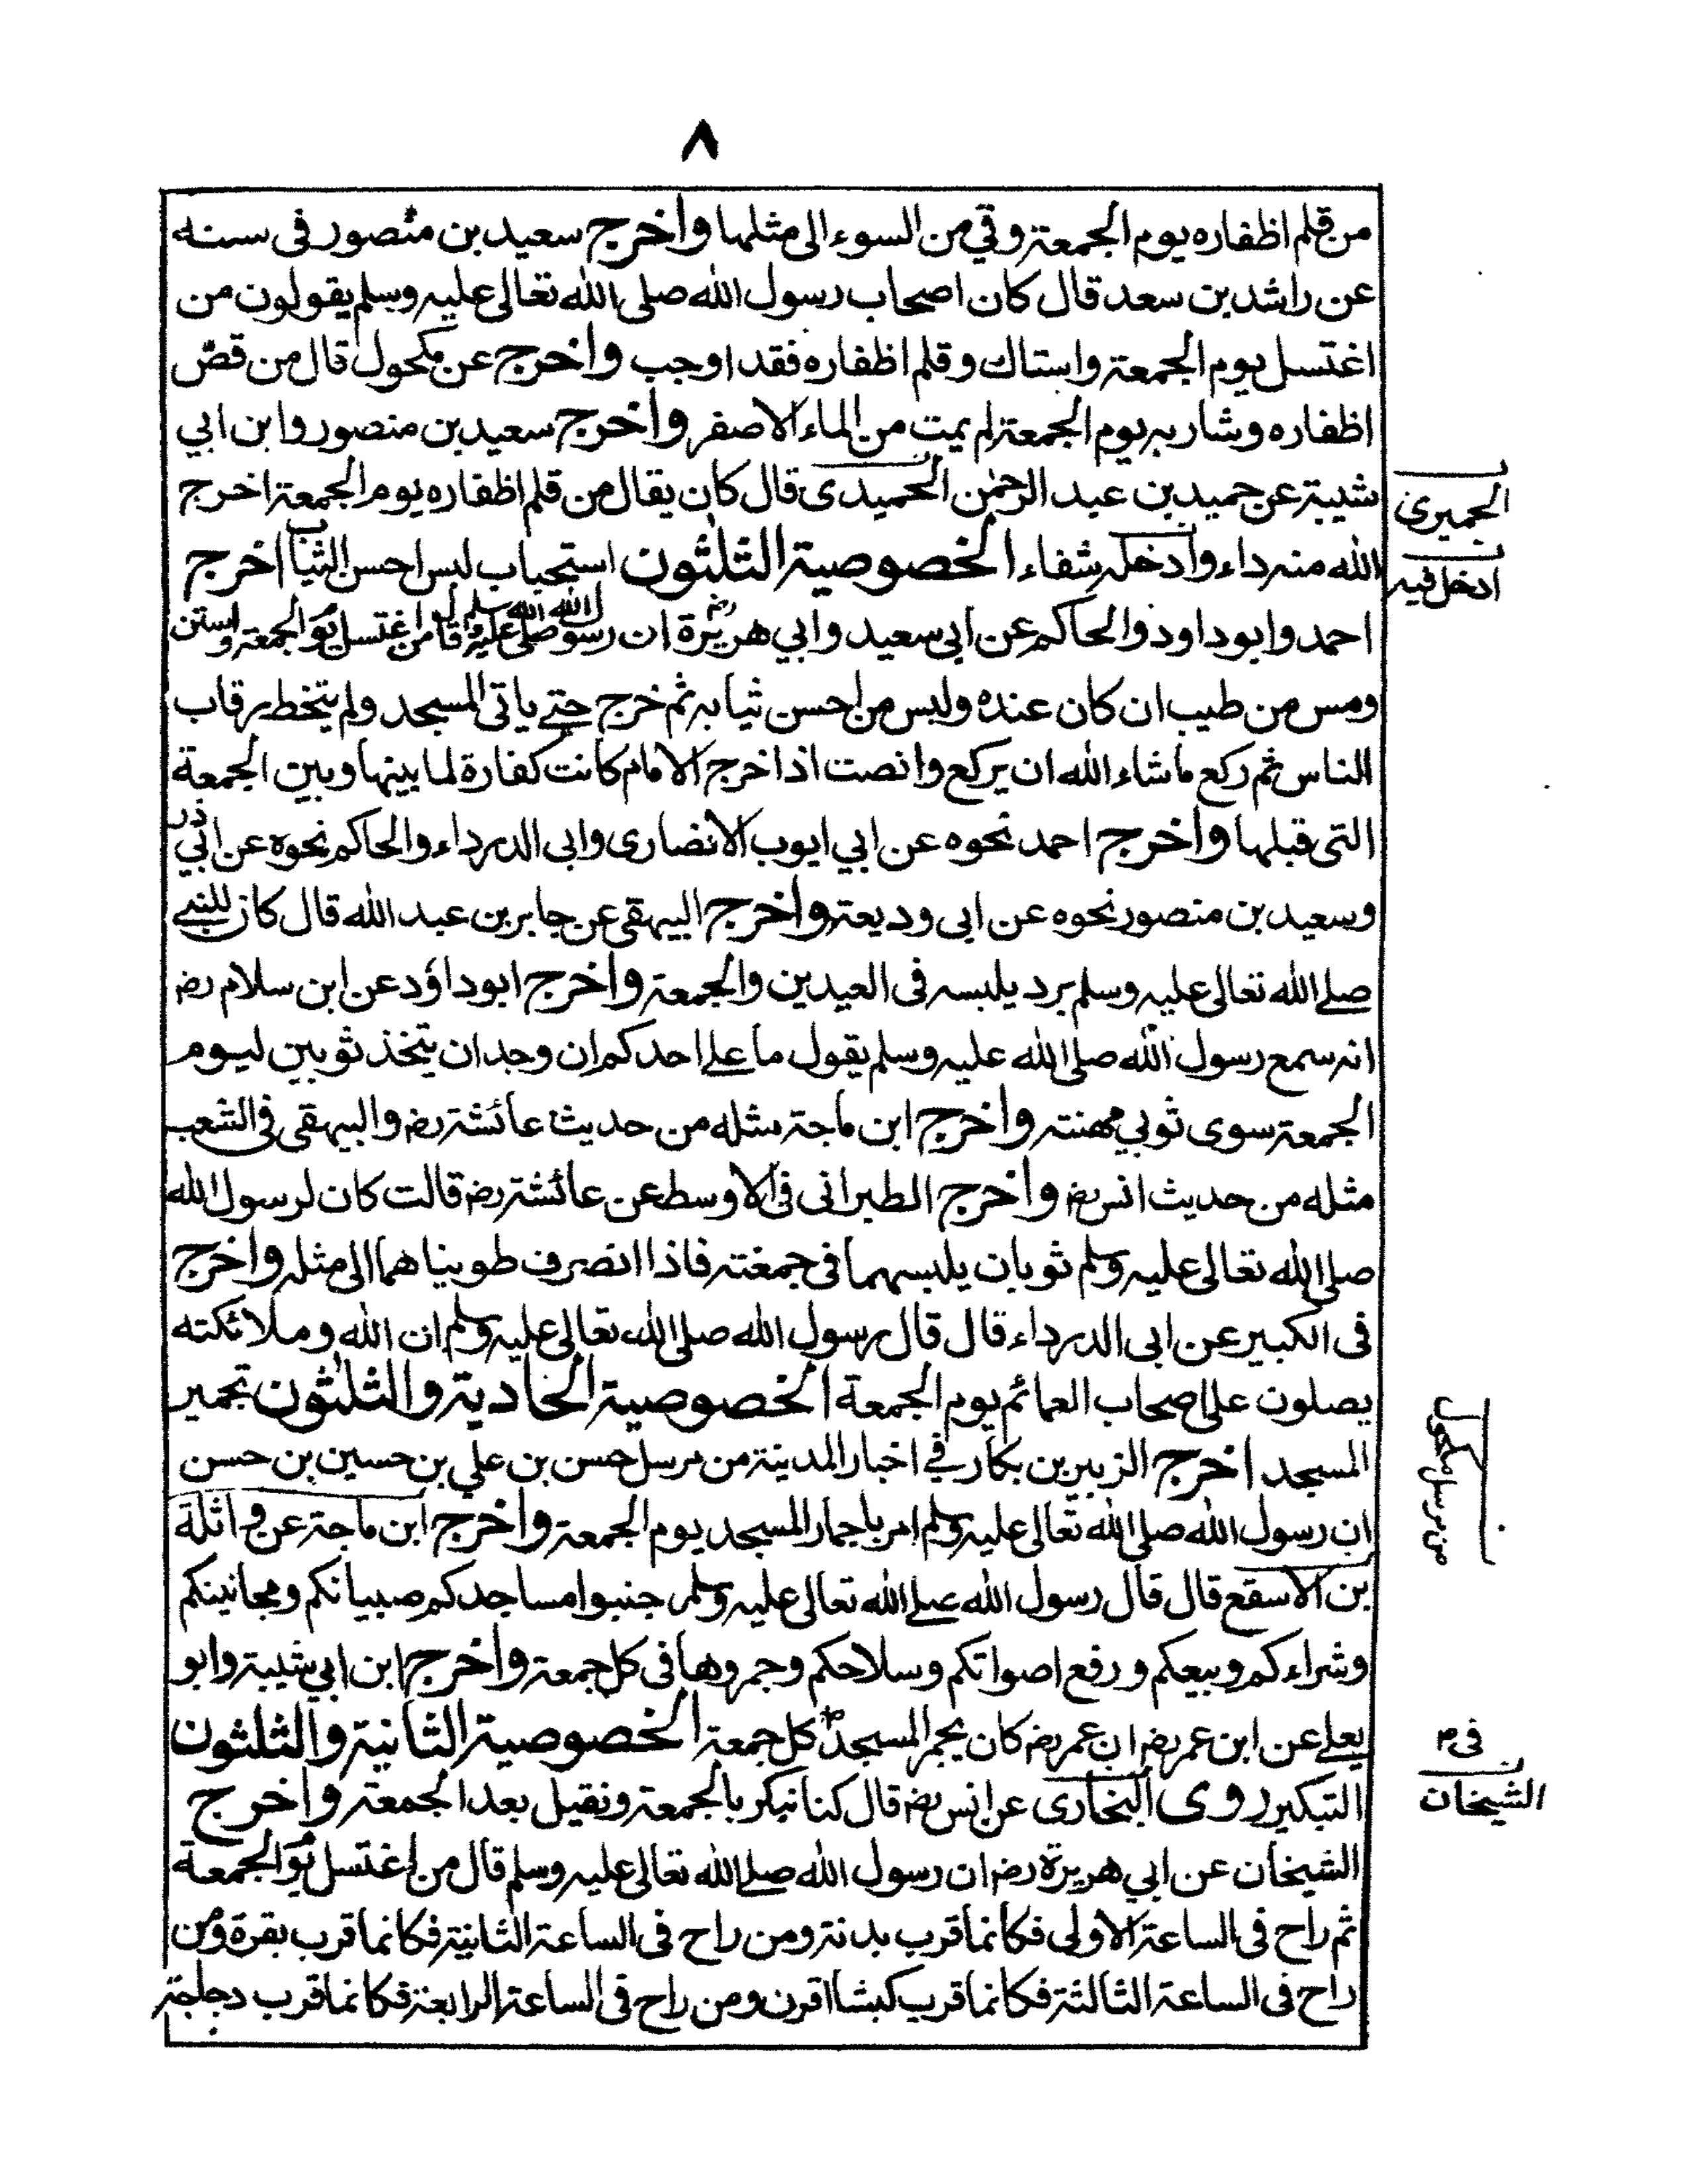 ٨
من قلم اظفاره يوم الجمعة وقي من السوء الى مثلها واخرج سعيد بن منصور فى سننه
عن راشد بن سعد قال كان اصحاب رسول الله صلى الله تعالى عليه وسلم يقولون من
اغتسل يوم الجمعة واستاك وقلم اظفاره فقد اوجب واخرج عن مكحول قال من قصّ
اظفاره وشاربه يوم الجمعة لم يمت من الماء الاصفر واخرج سعيد بن منصور وابن ابي
شيبة عن حميد بن عبد الرحمٰن الحميدى قال كان يقال من قلم اظفاره يوم الجمعة اخرج
الحميرى
الله منه داء وادخله شفاء الخصوصية الثلثون استحباب لبس احسن الثياب اخرج
ادخل فيه
احمد وابو داود والحاكم عن ابى سعيد وابي هريرة رض ان رسول الله صلى الله عليه وسلم قال من اغتسل يوم الجمعة واستن
ومس من طيب ان كان عنده ولبس من احسن ثيابه ثم خرج حتے ياتى المسجد ولم يتخط رقاب
الناس ثم ركع ما شاء الله ان يركع وانصت اذا خرج الامام كانت كفارة لما بينها وبين الجمعة
التى قبلها واخرج احمد نحوه عن ابي ايوب الانصارى وابى الدرداء والحاكم نحوه عن ابي ذر
وسعيد بن منصور نحوه عن ابى وديعة واخرج البيهقى عن جابر بن عبد الله قال كان للنبے
صلے الله تعالى عليه وسلم برد يلبسه فى العيدين والجمعة واخرج ابو داؤد عن ابن سلام رض
انه سمع رسول الله صلى الله عليه وسلم يقول ما علے احدكم ان وجد ان يتخذ ثوبين ليوم
الجمعة سوى ثوبي مهنته واخرج ابن ماجة مثله من حديث عائشة رض والبيهقى فى الشعب
مثله من حديث انس رض واخرج الطبرانى فى الاوسط عن عائشة رض قالت كان لرسول الله
صلى الله تعالى عليه وسلم ثوبان يلبسهما فى جمعته فاذا انصرف طويناهما الى مثله واخرج
فى الكبير عن ابى الدرداء قال قال رسول الله صلى الله تعالى عليه وسلم ان الله وملائكته
يصلون على اصحاب العمائم يوم الجمعة الخصوصية الحادية والثلثون تجمير
المسجد اخرج الزبير بن بكار في اخبار المدينة من مرسل حسن بن علي بن حسين بن حسن
من مرسل مكحول
ان رسول الله صلى الله تعالى عليه وسلم امر باجمار المسجد يوم الجمعة واخرج ابن ماجة عن واثلة
بن الاسقع قال قال رسول الله صلے الله تعالى عليه وسلم جنبوا مساجدكم صبيانكم ومجانينكم
وشراءكم وبيعكم ورفع اصواتكم وسلاحكم وجمروها فى كل جمعة واخرج ابن ابي شيبة وابو
يعلے عن ابن عمر رض ان عمر رض كان يجمر المسجد كل جمعة الخصوصية الثانية والثلثون
فى م
التبكير روى البخارى عن انس رض قال كنا نبكر بالجمعة ونقيل بعد الجمعة واخرج
الشيخان
الشيخان عن ابي هريرة رض ان رسول الله صلے الله تعالى عليه وسلم قال من اغتسل يوم الجمعة
ثم راح فى الساعة الاولى فكانما قرب بدنة ومن راح فى الساعة الثانية فكانما قرب بقرة ومن
راح فى الساعة الثالثة فكانما قرب كبشا اقرن ومن راح فى الساعة الرابعة فكانما قرب دجاجة